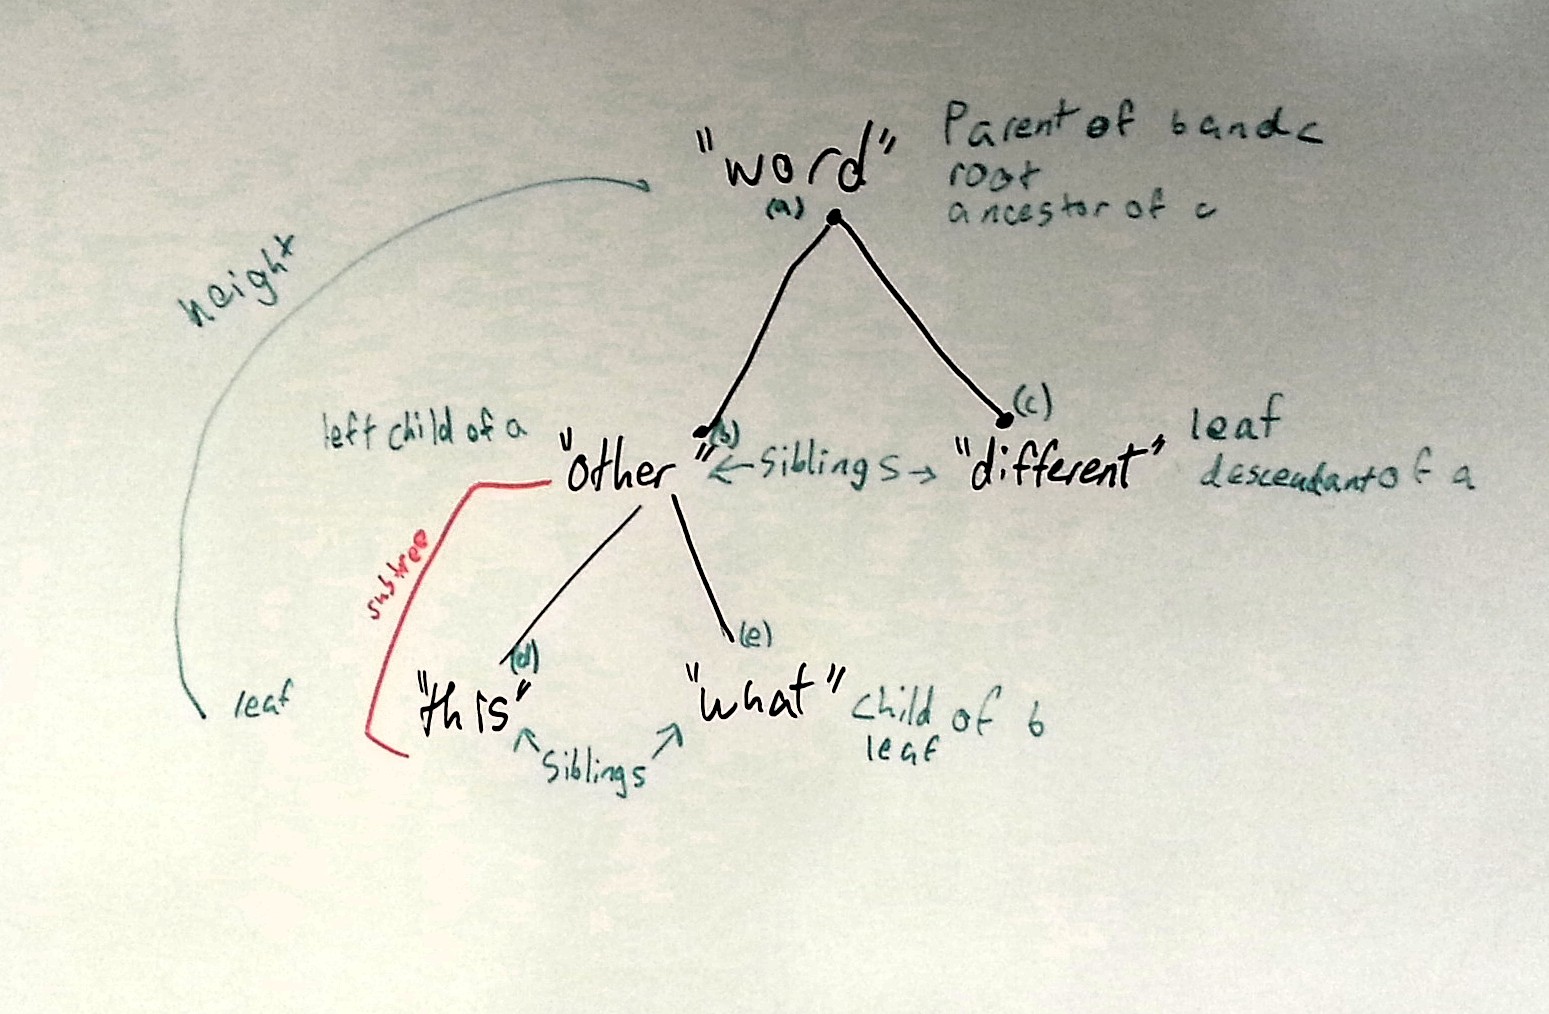 "word" Parent of b and c
root
(a) ancestor of c
height
(c)
left child of a "other" (b) ←siblings→ "different" leaf
descendant of a
subtree
(d) (e)
leaf "this" "what" child of b
leaf
siblings